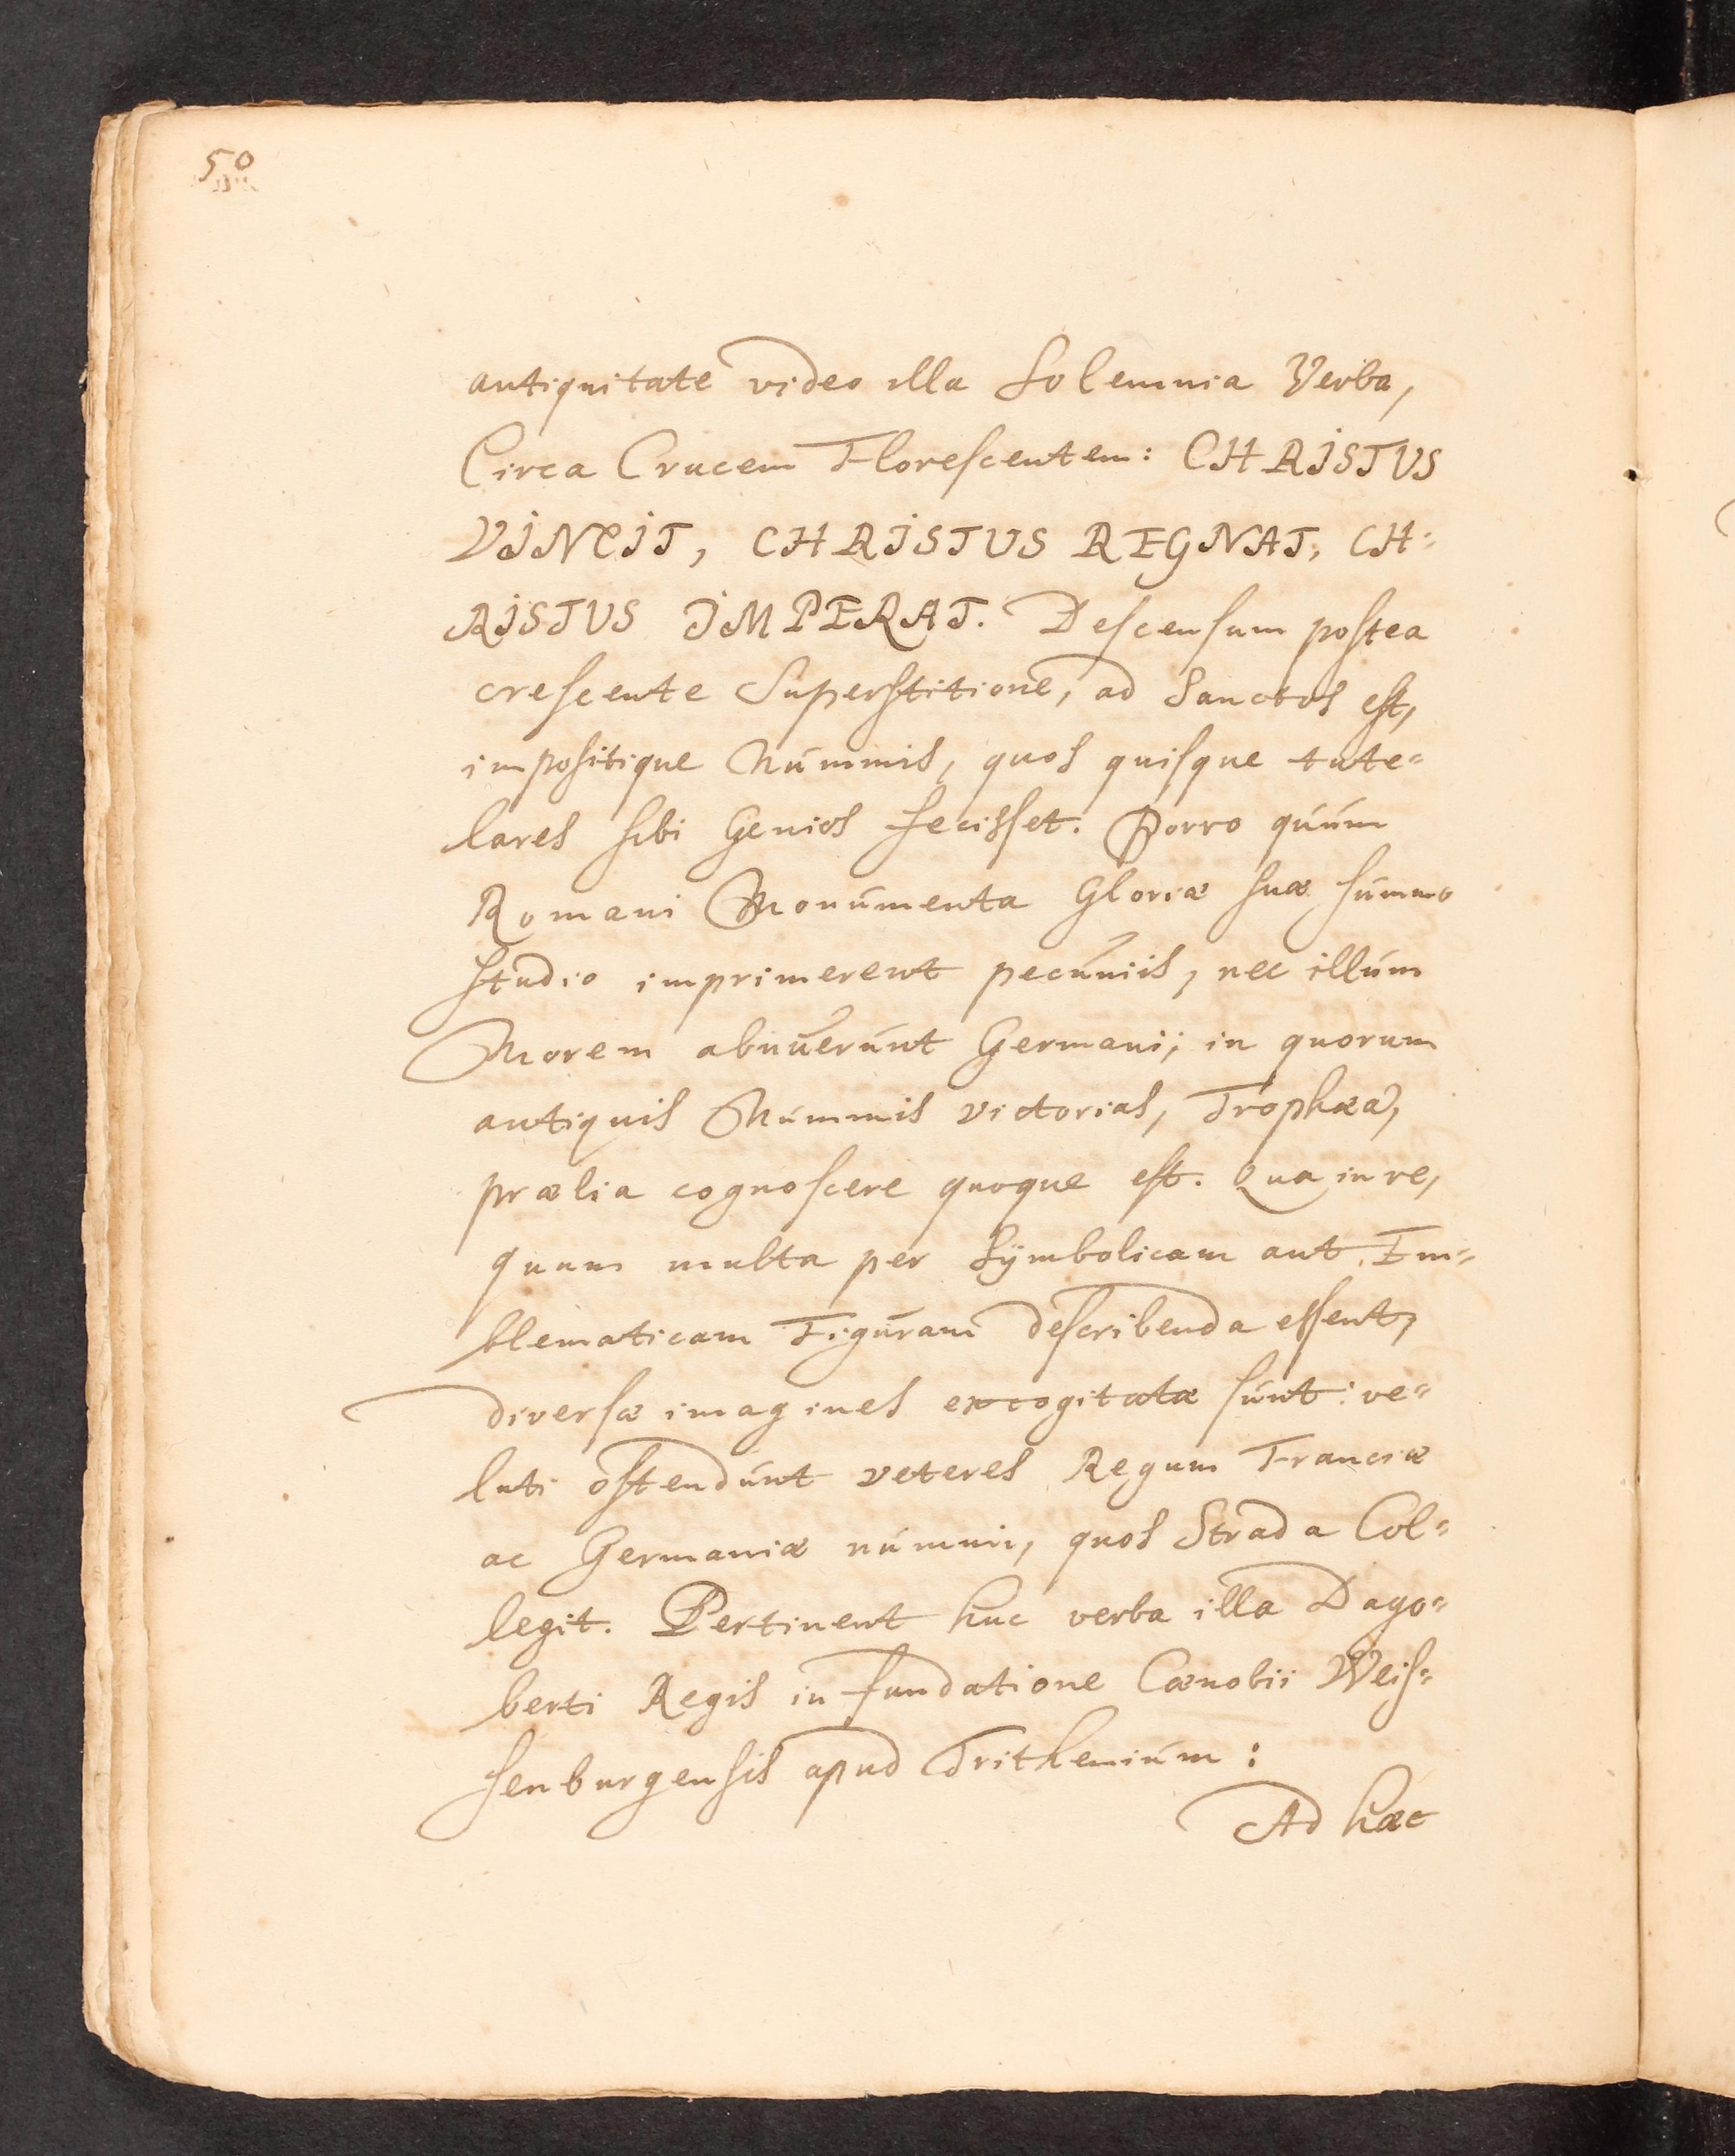 50
antiquitate video illa Solemnia Verba,
Circa Crucem Florescentem: CHRISTUS
VINCIT, CHRISTUS REGNAT, CH=
RISTUS IMPERAT. Descensum postea
crescente Superstitione, ad Sanctos est,
impositique Númmis, quos quisque tute=
lares sibi Genios fecisset. Porro qúúm
Romani Monúmenta Gloriæ suæ súmmo
studio imprimerent pecúniis, nec illúm
Morem abnúerúnt Germani; in quorum
antiquis Númmis victorias, Trophæa,
prælia cognoscere quoque est. Qua in re,
quum multa per Sÿmbolicam aut Em=
blematicam Figúram describenda essent,
diversæ imagines excogitatæ súnt: ve=
luti ostendúnt veteres Regum Franciæ
ac Germaniæ númmi, quos Strada Col=
legit. Pertinent huc verba illa Dago=
berti Regis in fundatione Cœnobii Weis=
senburgensis apud Trithemiúm:
Ad hæc